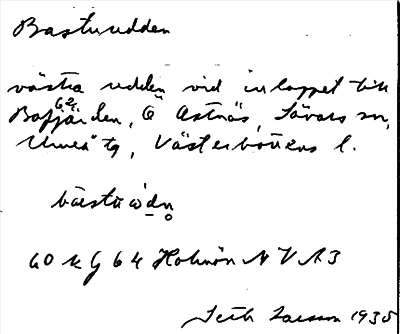 Bastuudden
västra udden vid inloppet till
64
Bofjärden, Ö Astnäs, Sävars sn,
Umeå tg, Västerbottens l.
bästu ẁdn
60 K G 64 Holmön N V A3
Seth Larsson 1935